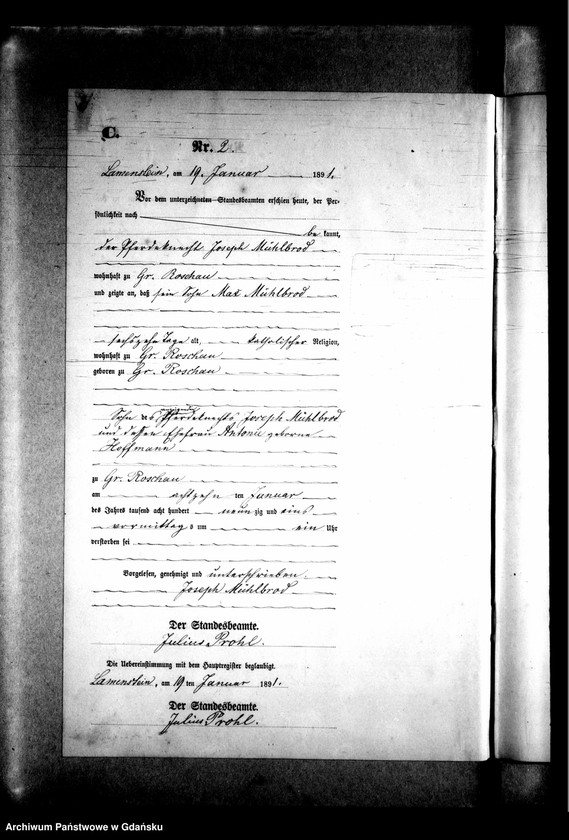 C.
Nr. 2.
Lamenstein, am 19. Januar 1891.
Vor dem unterzeichneten Standesbeamten erschien heute, der Per-
sönlichkeit nach
be kannt,
der Pferdeknecht Joseph Mühlbrod
wohnhaft zu Gr. Roschau
und zeigte an, daß sein Sohn Max Mühlbrod
sechszehn Tage alt, katholischer Religion,
wohnhaft zu Gr. Roschau
geboren zu Gr. Roschau
Sohn des Pferdeknechts Joseph Mühlbrod
und dessen Ehefrau Antonie geborne
Hoffmann
zu Gr. Roschau
am achtzehn ten Januar
des Jahres tausend acht hundert neun zig und eins
vormittag s um ein Uhr
verstorben sei
Vorgelesen, genehmigt und unterschrieben
Joseph Mühlbrod
Der Standesbeamte.
Julius Prohl.
Die Uebereinstimmung mit dem Hauptregister beglaubigt.
Lamenstein, am 19 ten Januar 1891.
Der Standesbeamte.
Julius Prohl.
Archiwum Państwowe w Gdańsku